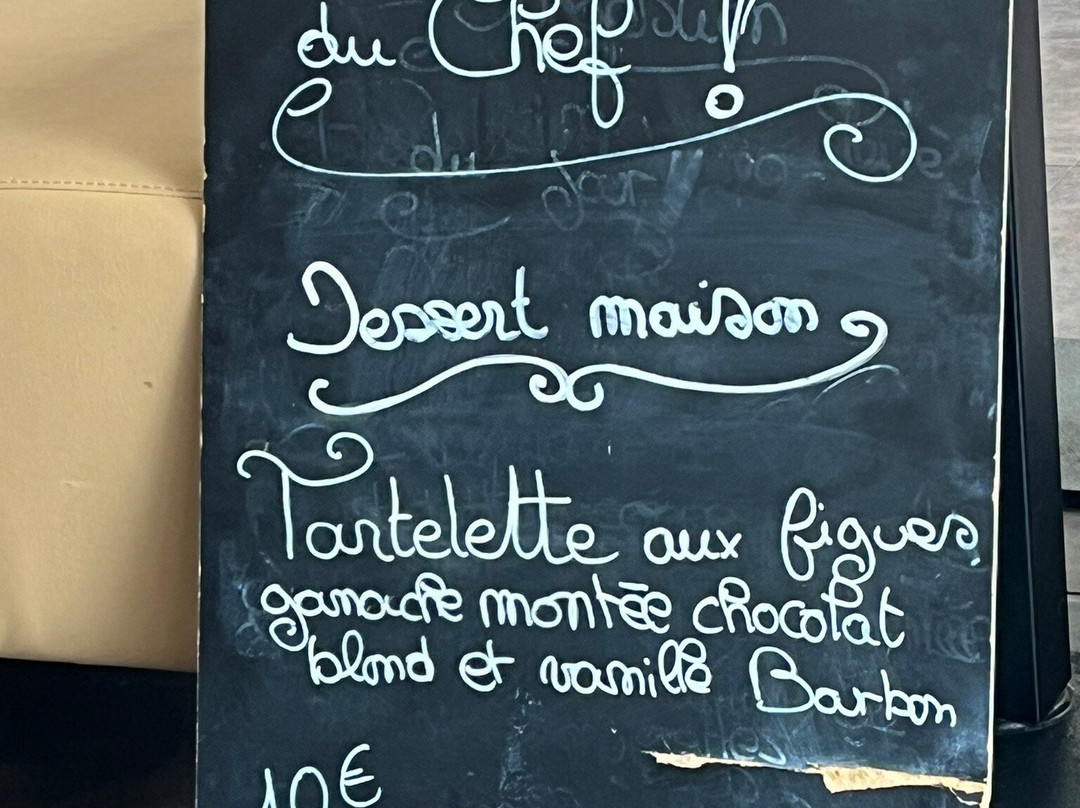 du Chef !
Dessert maison
Tartelette aux figues
ganache montée chocolat
blond et vanille Barbon
10€